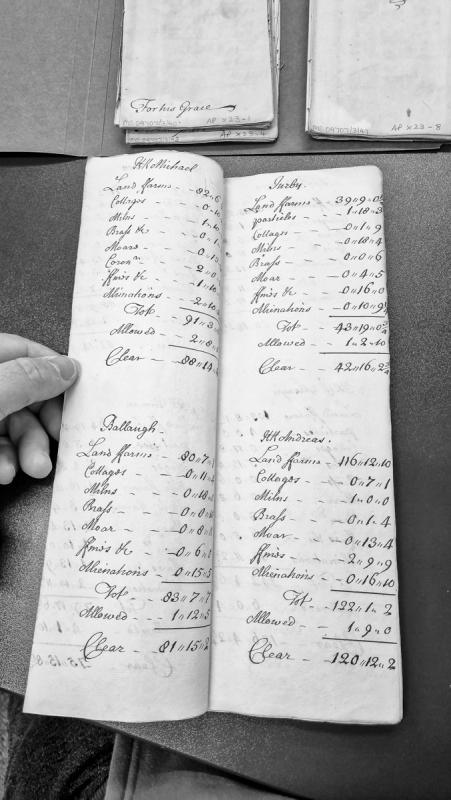 For his Grace
AP X23-1
AP X23-4
AP X23-8
KK Michael
Land ffarms - 82
Cottages - 0
Milns - 1
Brass &c - 0
Moars - 0
Coron
ffines &c - 1
Alienations - 2
Tot - 91
Allowed - 2
Clear - 88
Ballaugh
Land ffarms - 80 " 7
Cottages - 0 " 11
Milns - 0 " 18
Brass - 0 " 0
Moar - 0 " 8
ffines &c - 0 " 6
Alienations - 0 " 15 " 5
Tot - 83 " 7 " 7
Allowed - 1 " 12 " 5
Clear - 81 " 15 " 2
Jurby
Land ffarms 39 " 9
particles - 1 " 18 " 3
Cottages - 0 " 1 " 9
Milns - 0 " 18 " 4
Brass - 0 " 0 " 6
Moar - 0 " 4 " 5
ffines &c - 0 " 16 " 0
Alienations - 0 " 10 " 9½
Tot - 43 " 19 " 0¾
Allowed - 1 " 2 " 10
Clear - 42 " 16 " 2¾
KK Andreas
Land ffarms - 116 " 12 " 10
Cottages - 0 " 7 " 1
Milns - 1 " 0 " 0
Brass - 0 " 1 " 4
Moar - 0 " 13 " 4
ffines - 2 " 9 " 9
Alienations - 0 " 16 " 10
Tot - 122 " 1 " 2
Allowed - 1 " 9 " 0
Clear - 120 " 12 " 2